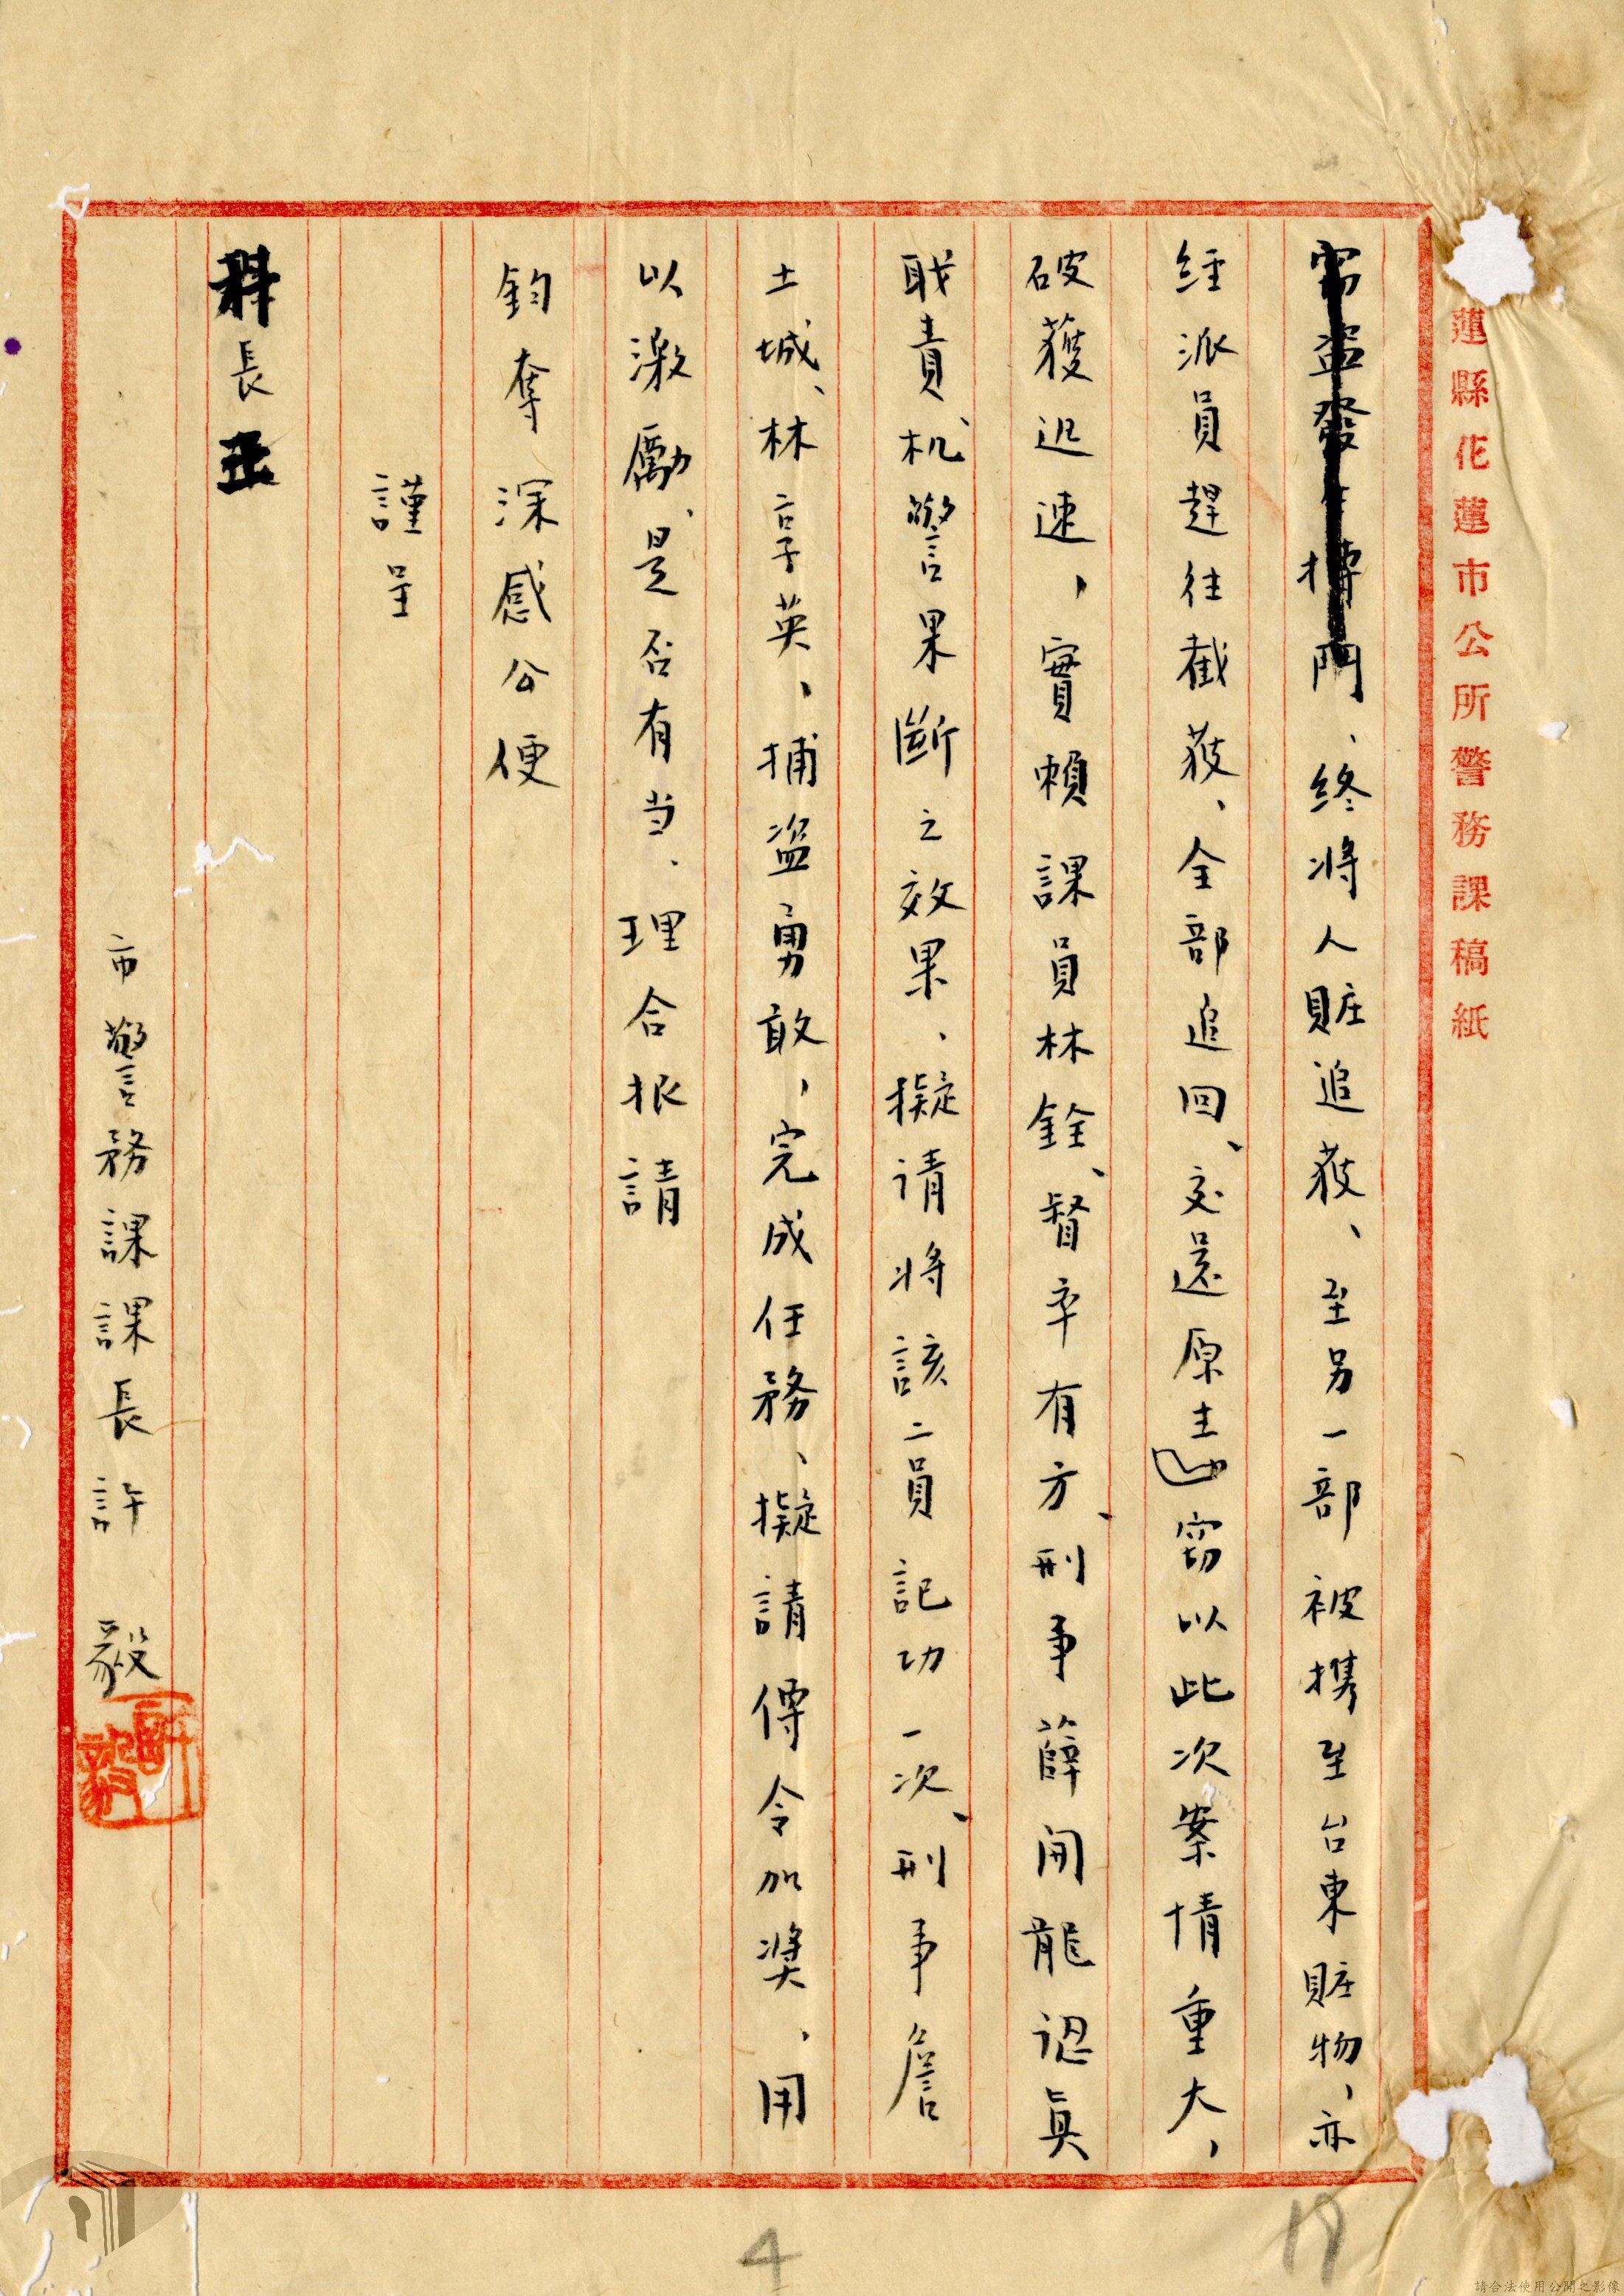 蓮縣花蓮市公所警務課稿紙
窃盜發生搏鬥、終將人賍追获、至另一部被携至台東賍物、亦
経派員趕往截获、全部追回、交還原主窃以此次案情重大,
破獲迅速,實賴課員林銓、督率有方、刑事薛開龍認真
耺責、机警果断之效果、擬请将該二員記功一次、刑事詹
土城、林享英、捕盜勇敢,完成任務、擬請傳令加奨、用
以激勵、是否有当、理合报請
鈞奪深感公便
謹呈
科長
市警務課課長許毅
許毅
4
19
請合法使用公開之影像